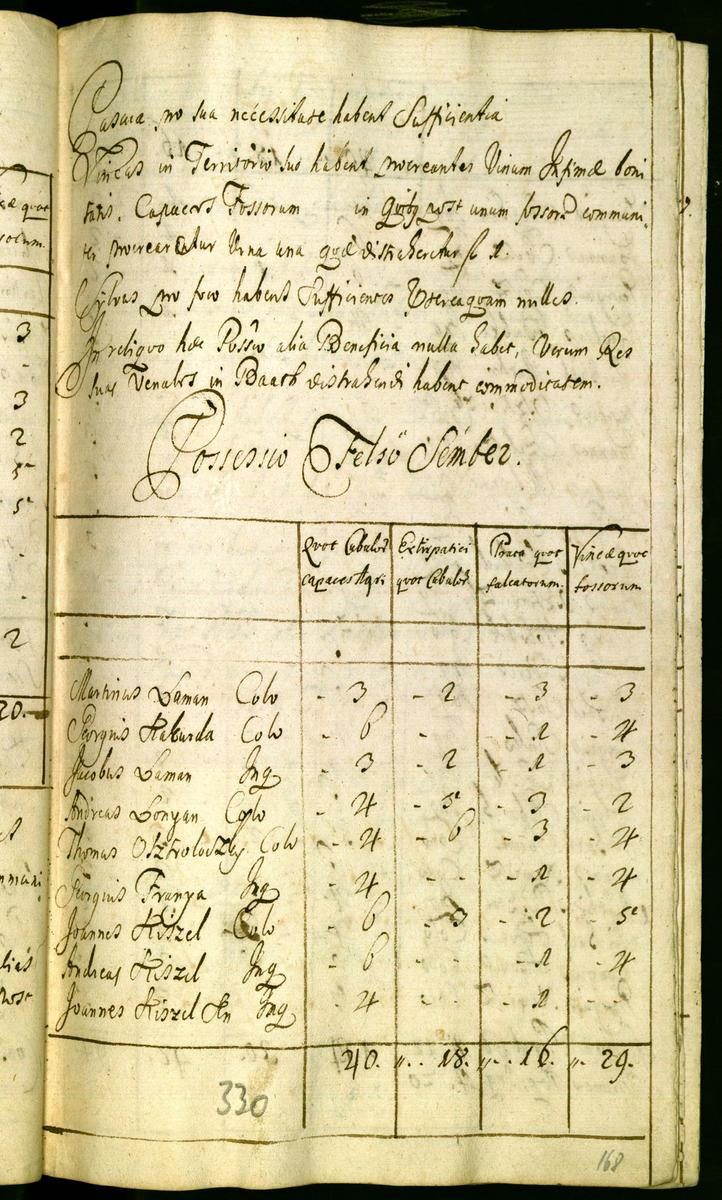 Pascua pro sua necessitate habent Sufficientia
Vineas in Territorio suo habent procreantes Vinum Infimae boni
tatis. Capaces Fossorum in quor post unum fossorē communi-
ter procreatur Urna una quae distraheretur fl 1.
Sylvas pro foco habent Sufficientes Praetereaquam nullas.
In reliquo haec Possio alia Beneficia nulla habet, Verum Res
suas Venales in Baath distrahendi habent commoditatem.
Possessio Felsö Sember.
Quot Cubulor capaces Agri
Extirpatici quot Cubulor
Prata quot falcatorum
Vineae quot fossorum
Martinus Laman Colo - 3 - 2 - 3 - 3
Georgius Haburda Colo - 6 - 1 - 4
Jacobus Laman Inq - 3 - 2 - 1 - 3
Andreas Lonyan Colo - 4 - 5 - 3 - 2
Thomas Osztroluczky Colo - 4 - 6 - 3 - 4
Georgius Franya Inq - 4 - - - 1 - 4
Joannes Kiszel Colo - 6 - 3 - 2 - 5
Andreas Kiszel Inq - 6 - 1 - 4
Joannes Kiszel Sen Inq - 4 - - - 1 - -
40. 18. 16. 29.
330
168
quot
3
-
3
2
5
5
-
-
2
20.